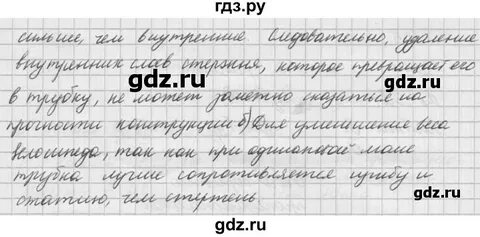 гдз.ру
сильнее, чем внутренние. Следовательно, удаление
внутренних слоев стержня, которое превращает его
gdz.ru gdz.ru
в трубку, не может заметно сказаться на
прочности конструкции б) Для уменшиния веса
велосипеда, так как при одинаковой масе
трубка лучше сопротивляется изгибу и
gdz.ru gdz.ru
сжатию, чем стержень.
gdz.ru